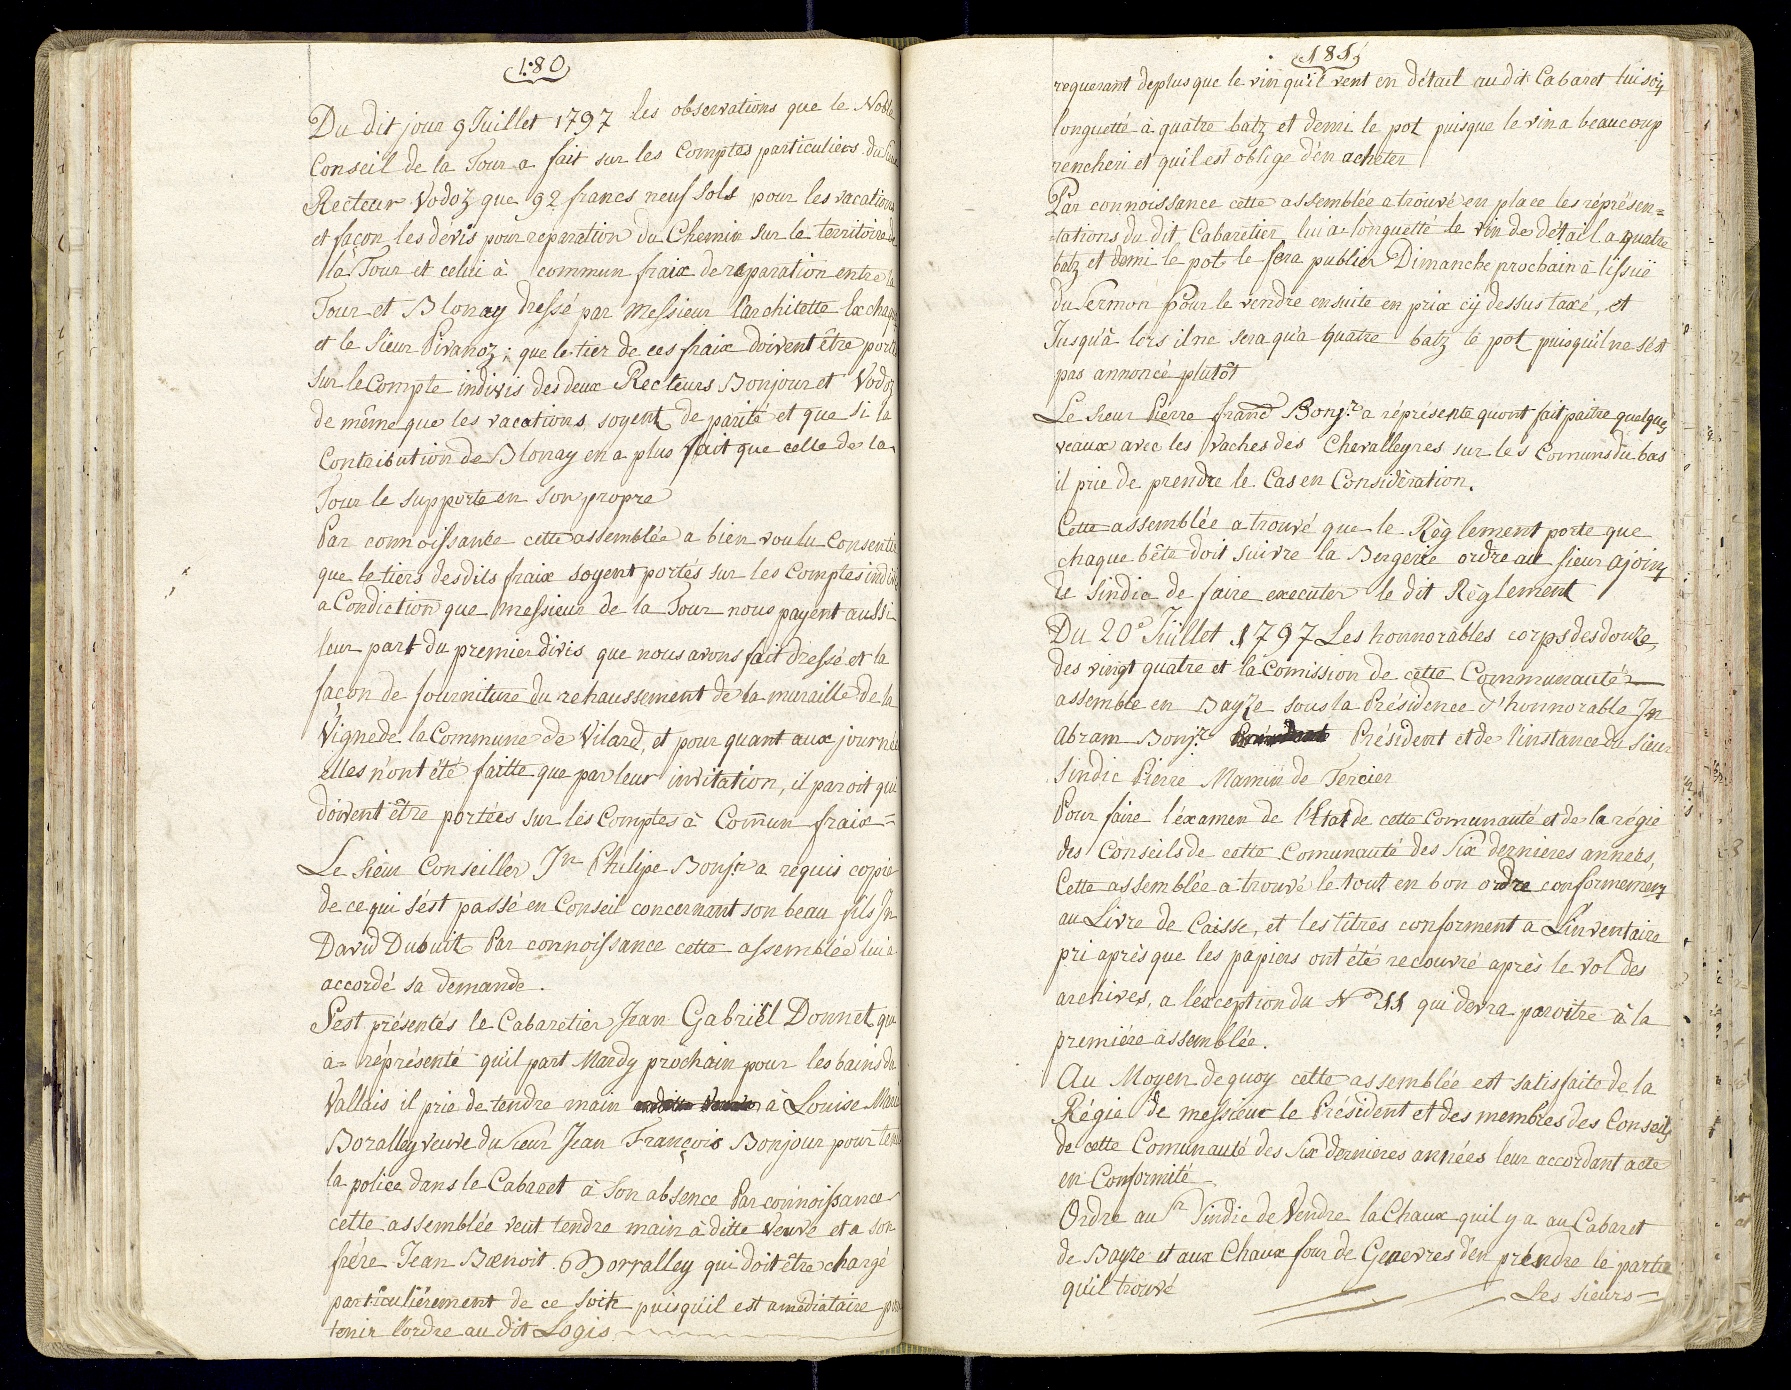 180
Du dit jour 9 Juillet 1797 les observations que le Noble
Conseil de la Tour a fait sur les Comptes particuliers du
Recteur Vodoz que 92 francs neuf sols pour les vacations
et façon les devis pour reparation du Chemin sur le territoire de
la Tour et celui à commun fraix de reparation entre la
Tour et Blonay dressé par Messieur l'architette
et le Sieur ; que le tier de ces fraix doivent être portés
sur le Compte indivis des deux Recteurs Bonjour et Vodoz
de même que les vacations soyent de parité et que si la
Contribution de Blonay en a plus fait que celle de la
Tour le supporte en son propre
Par connoissance cette assemblée a bien voulu Consentir
que le tiers desdits fraix soyent portés sur les Comptes indivis
a Condiction que Messieur de la Tour nous payent aussi
leur part du premier divis que nous avons fait dressé et la
façon de fourniture du rehaussement de la muraille de la
Vigne de la Commune de Vilard, et pour quant aux journée
elles n'ont été faitte que par leur invitation, il paroit qui
doivent être portées sur les Comptes à Comun fraix=
Le Sieur Conseiller Jn Philipe Bonjr a requis copie
de ce qui s'ést passé en Conseil concernant son beau fils Jn
David Dubuit Par connoissance cette assemblée lui a
accordé sa demande.
S'est présentés le Cabaretier Jean Gabriël Donnet qui
a= réprésenté qu'il part Mardy prochain pour les bains du
Vallais il prie de tendre main à Louise Marie
Boralley veuve du Sieur Jean François Bonjour pour tenir
la police dans le Cabaret à son absence Par connoissance
cette assemblée veut tendre main à ditte Veuve et a son
frére Jean Bænoit Borralley qui doit être chargé
particuliérement de ce soit puisqu'il est amodiataire pour
tenir l'ordre au dit Logis
181
requerant deplus que le vin qu'il vent en détail au dit Cabaret lui soit
longuetté à quatre batz et demi le pot puisque le vin a beaucoup
rencheri et qu'il est oblige d'en acheter
Par connoissance cette assemblée a trouvé en place les réprésen=
=tations du dit Cabaretier lui a longuetté le vin de détail a quatre
batz et demi le pot le fera publier Dimanche prochain à l'issuë
du Sermon pour le vendre ensuite en prix cy dessus taxé, et
Jusqu'à lors il ne sera qu'a quatre batz le pot puisqu'il ne s'ést
pas annoncé plutôt
Le Sieur Pierre franç Bonjr a réprésenté qu'ont fait paitre quelques
veaux avec les vaches des Chevalleyres sur les Comuns du bas
il prie de prendre le Cas en Considération.
Cette assemblée a trouvé que le Règlement porte que
chaque bête doit suivre la Bergerie ordre au sieur ajoint
de Sindic de faire executer le dit Règlement
Du 20e Juillet 1797 Les honnorables corps des douze,
des vingt quatre et la Comission de cette Communauté
assemble en Bayse sous la Présidence d'honnorable Jn
Abram Bonjr Président et de l'instance du Sieur
Sindic Pierre Mamin de Tercier
Pour faire l'éxamen de l'Etat de cette Comunauté et de la régie
des Conseils de cette Comunauté des Six dernieres années,
Cette assemblée a trouvé le tout en bon ordre conformement
au Livre de Caisse, et les tîtres conforment a L'inventaire
pri après que les papiers ont été recouvré après le vol des
archives, a léxception du No 11 qui devra paroitre à la
première assemblée.
Au Moyen de quoy cette assemblée est satisfaite de la
Régie de messieur le Président et des membres des Conseils
de cette Comunauté des Six dernieres années leur accordant acte
en Conformité
Ordre au Sr Sindic de Vendre la Chaux qu'il y a au Cabaret
de Bayse et aux Chaux four de Genevres d'en prendre le partie
qu'il trouvé
Les Sieurs=